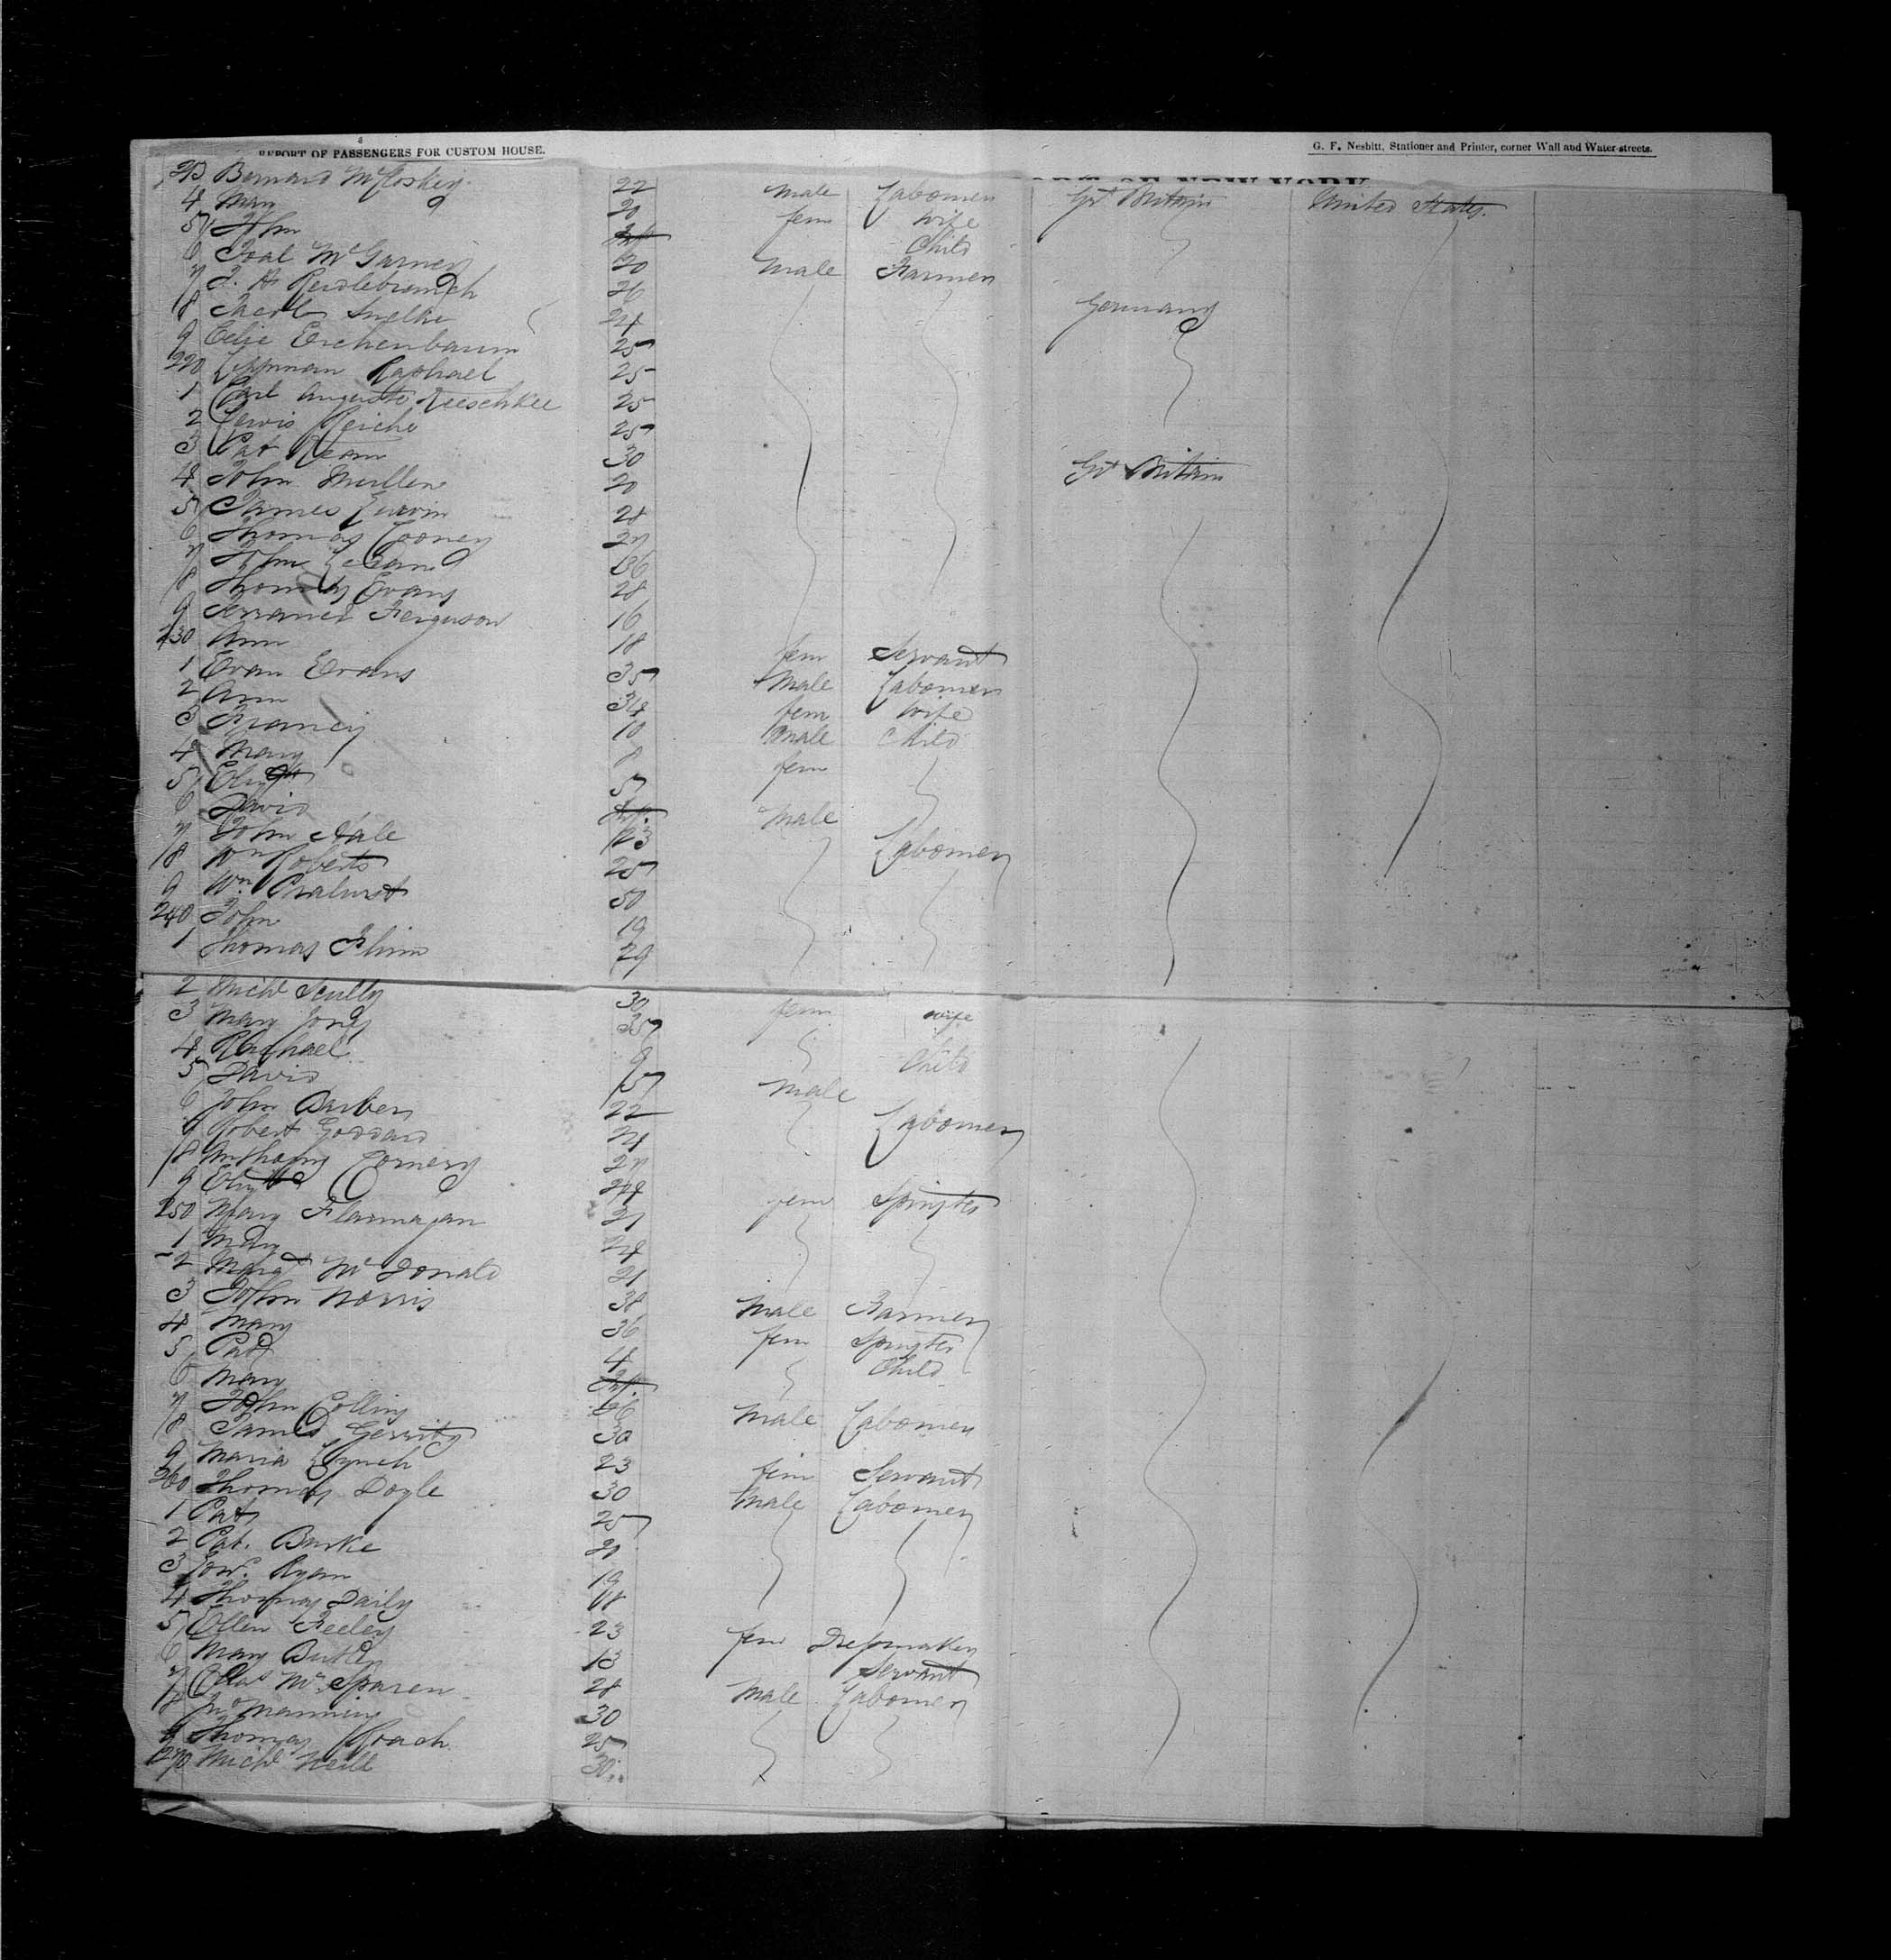 REPORT OF PASSENGERS FOR CUSTOM HOUSE.
G. F. Nesbitt, Stationer and Printer, corner Wall and Water-streets.
213 Bernard McCloskey 22 male Labourer Gt Britain United States.
4 Mary 20 fem wife
5 John Inft Child
6 Toal McGarvey 20 male Farmer
7 26
8 24 Germany
9 Celie Eichenbaum 25
220 Lippman Raphael 25
1 Carl Auguste 25
2 Lewis Reiche 25
3 Pat Kean 30 Gt Britain
4 John Mullen 20
5 James 28
6 Thomas Cooney 27
7 John 36
8 Thomas Evans 28
9 Ferguson 16
230 Ann 18 fem Servant
1 Evan Evans 35 Male Labourer
2 Ann 34 fem wife
3 Francis 10 Male Child
4 Mary 8 fem
5 Elizth 5
6 David Inft. Male
7 John Hale 23 Labourer
8 Wm Roberts 25
9 Wm 50
240 John 19
1 Thomas Flinn 29
2 Michl Scully 30
3 Mary Jones 35 fem wife
4 Rachael 9 Child
5 David 5 Male
6 John Barber 22 Labourer
7 Robert Goddard 21
8 Anthony 27
9 Elizth 24 fem Spinster
250 Mary Flannagan 21
1 Mary 24
2 Margt McDonald 21
3 John Norris 38 Male Farmer
4 Mary 36 fem Spinster
5 Pat 4 Child
6 Mary Inft.
7 John Collins 26 Male Labourer
8 James Gerrity 30
9 Maria Lynch 23 fem Servant
260 Thomas Doyle 30 Male Labourer
1 Pat 25
2 Pat. Burke 21
3 Edwd. Ryan 19
4 Thomas Daily 18
5 Ellen Feeley 23 fem Dressmaker
6 Mary Butler 13 Servant
7 Chas McSparen 28 Male Labourer
8 Manning 30
9 Thomas Roach 25
270 Michl Neill 30